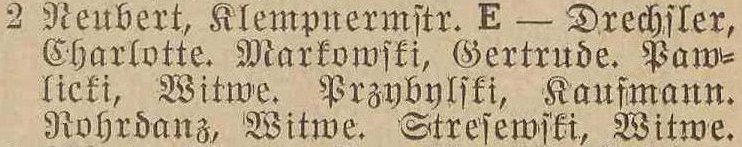 2 Neubert, Klempnermſtr. E — Drechſler,
Charlotte. Markowſki, Gertrude. Paw-
licki, Witwe. Przybylſki, Kaufmann.
Rohrdanz, Witwe. Streſewſki, Witwe.